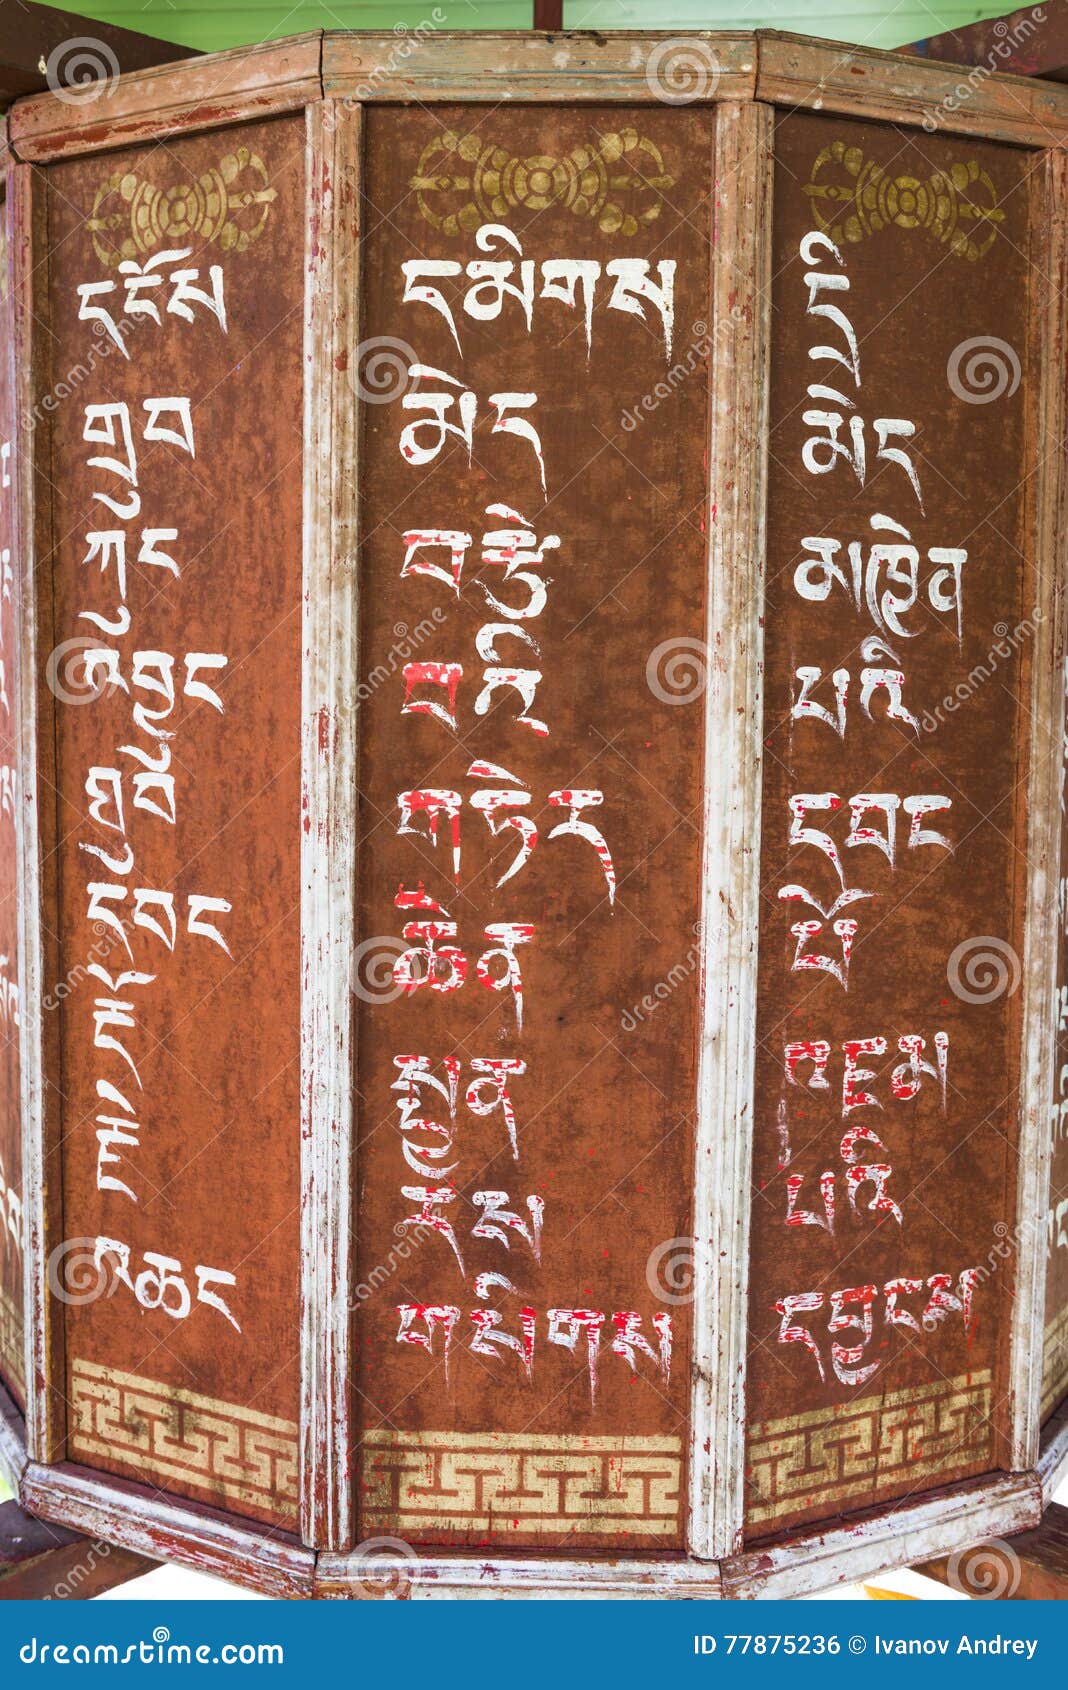 དངོས
གྲུབ
འབྱུང
ཐུབ
དབང
འཆང
དམིགས
མེད
བརྩེ
བའི
གཏེར
ཆེན
སྤྱན
རས
གཟིགས
དྲི
མེད
མཁྱེན
པའི
དབང
པོ
འཇམ
པའི
དབྱངས
dreamstime.com
ID 77875236 © Ivanov Andrey